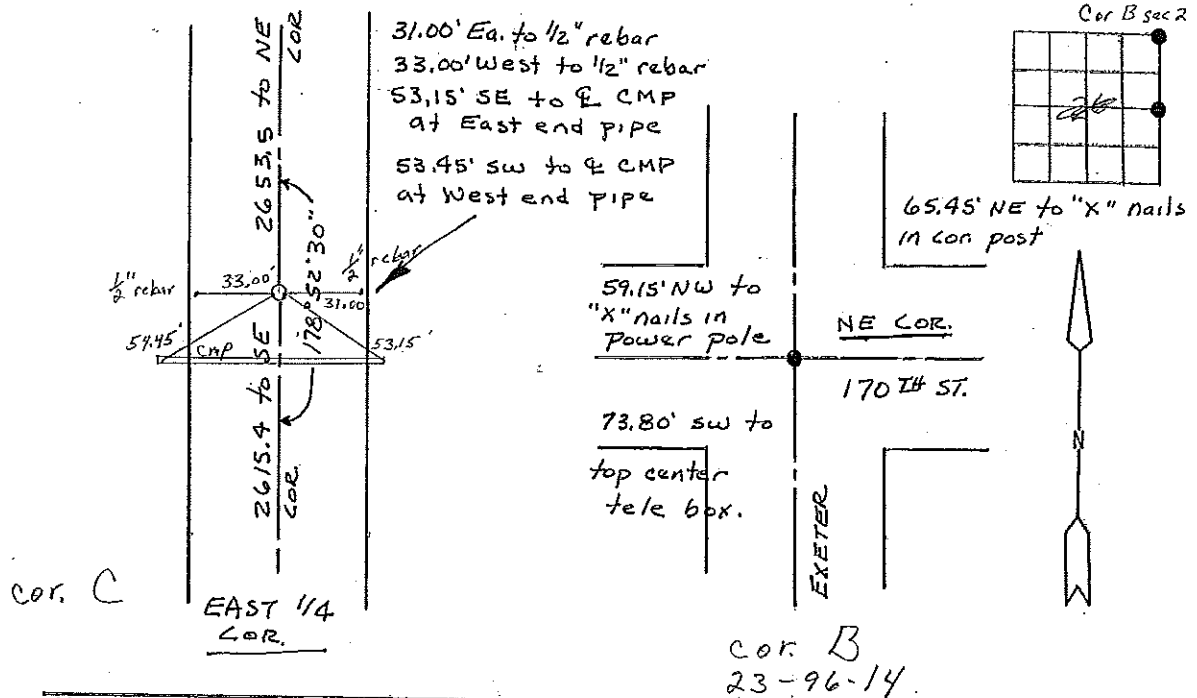 Cor B sec 2
26
31.00' Ea. to 1/2" rebar
33.00' West to 1/2" rebar
53.15' SE to ℄ CMP
at East end pipe
53.45' SW to ℄ CMP
at West end pipe
2653.5 to NE
COR
178°52'30"
1/2" rebar
1/2" rebar
33.00'
31.00
54.45'
CMP
53.15'
2615.4 to SE
COR.
cor. C
EAST 1/4
COR.
65.45' NE to "X" nails
in con post
59.15' NW to
"X" nails in
power pole
NE COR.
170TH ST.
73.80' SW to
top center
tele box.
EXETER
N
cor. B
23-96-14